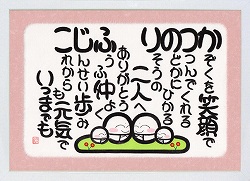 かぞくを笑顔で
つつんでくれる
のどかにひかる
りそうの
二人へ
ありがとう
ふうふ仲よ
じんせい歩み
これからも元気で
いつまでも